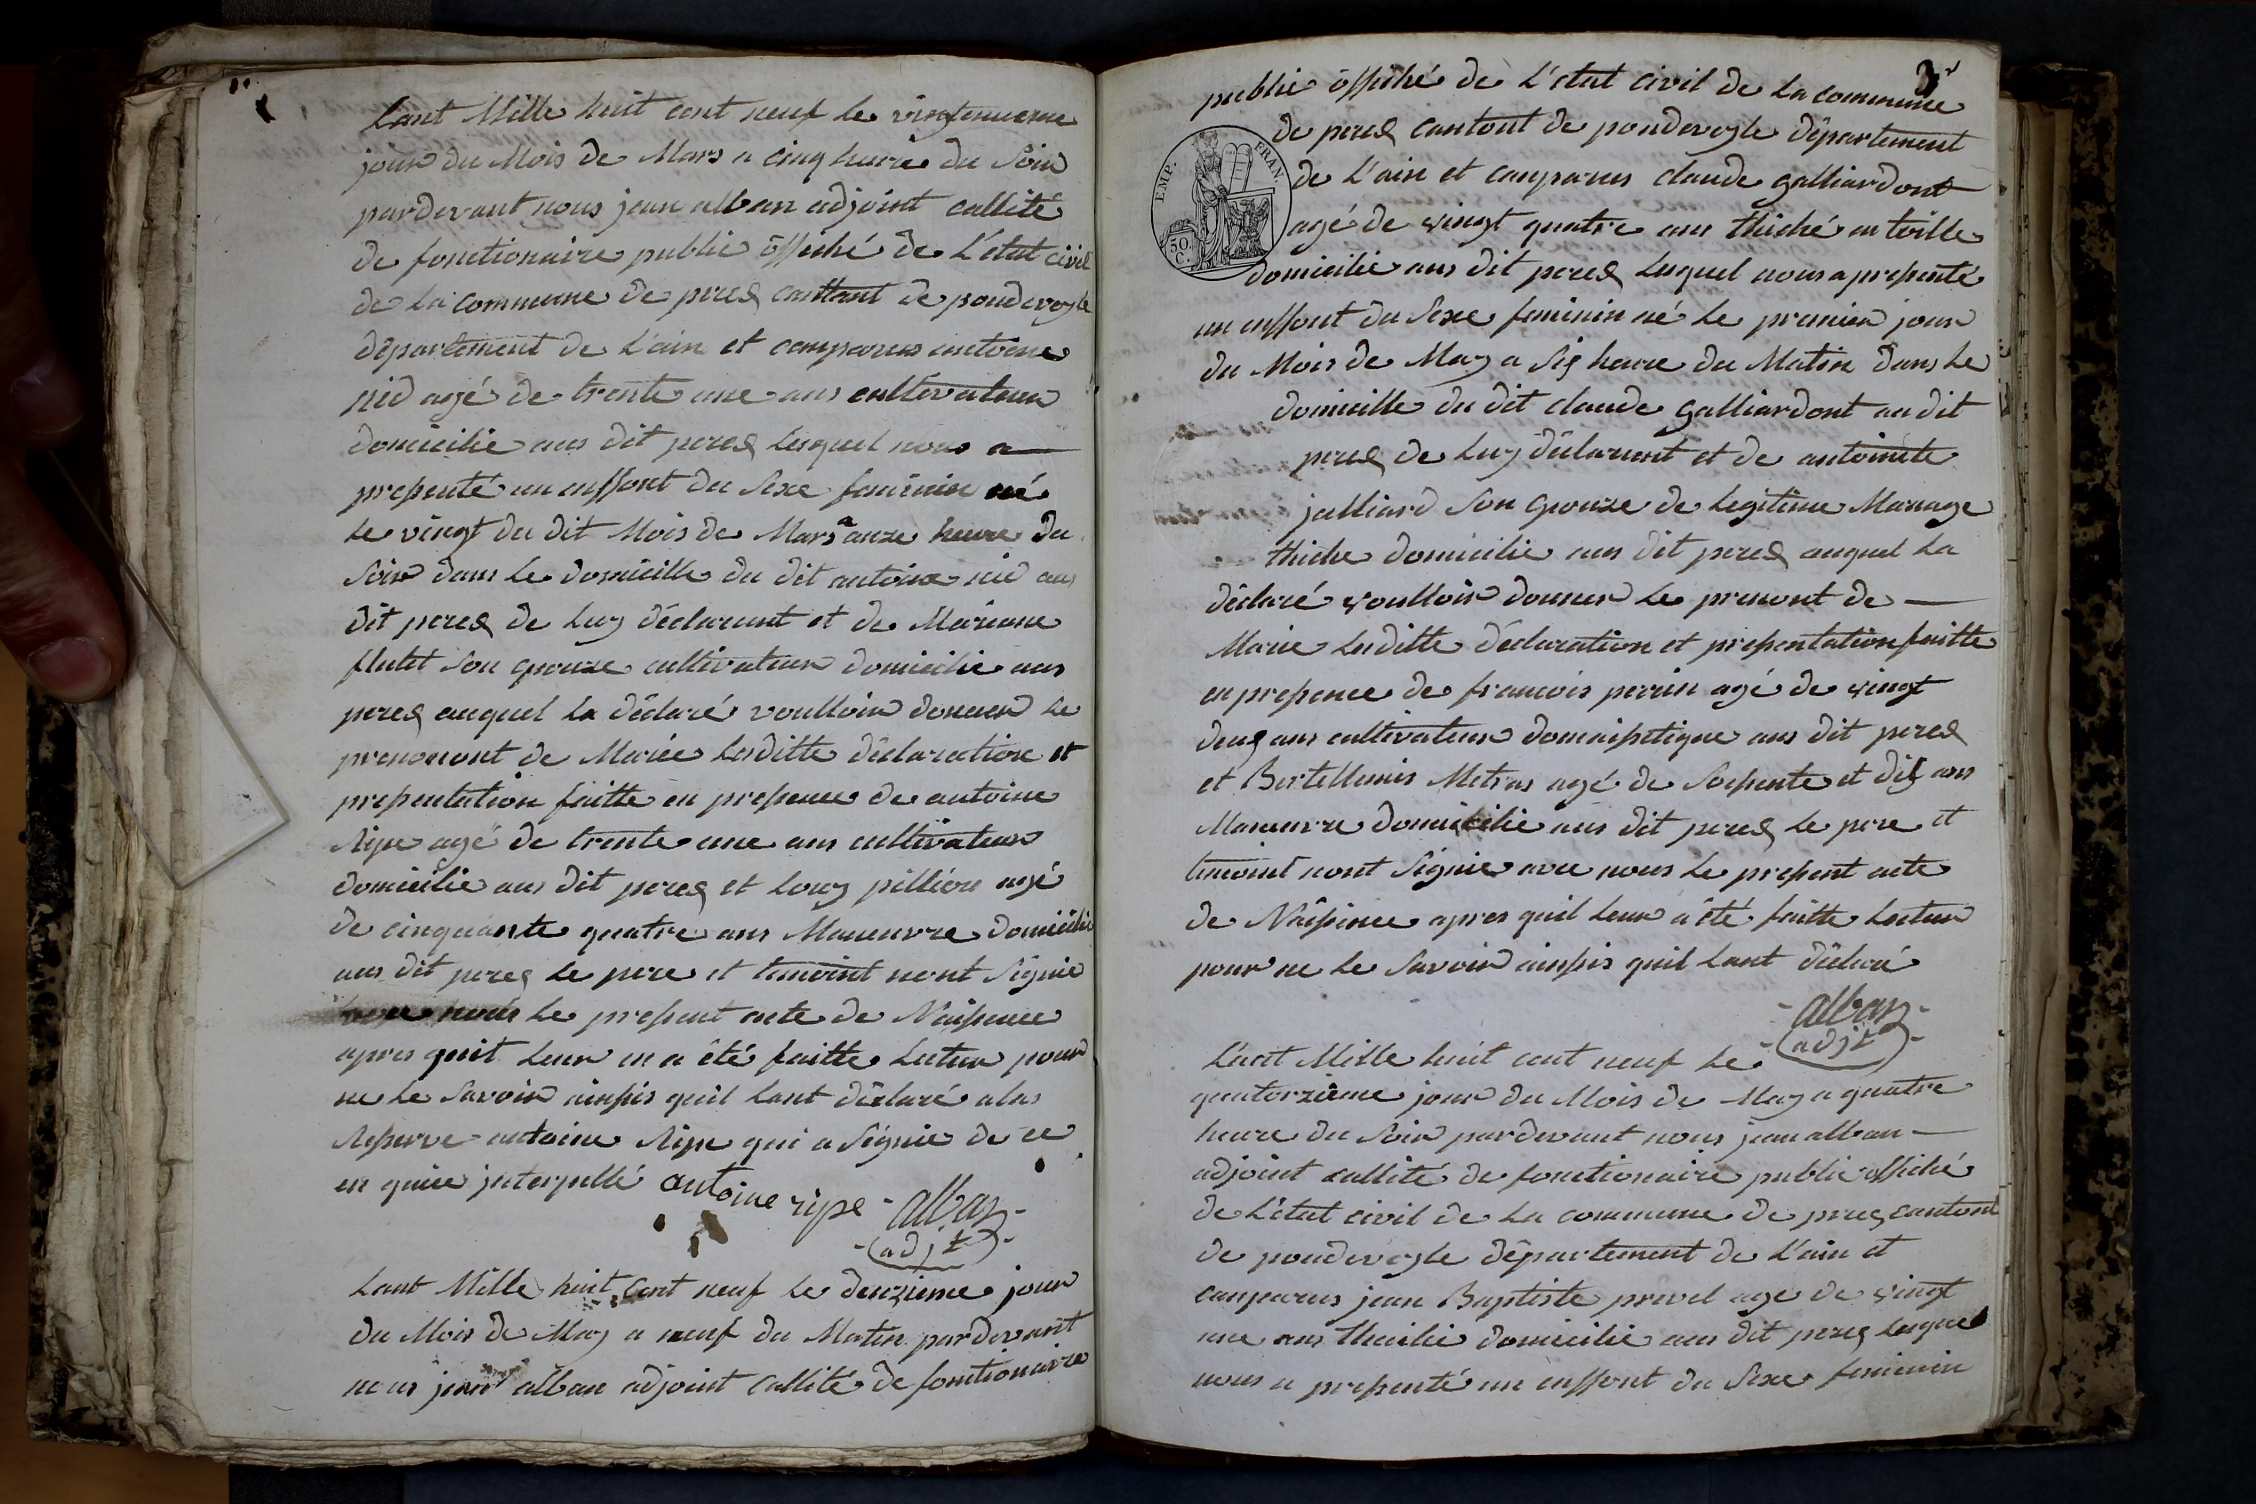 Lant Mille huit cent neuf le vingtenueme
jour du Mois de Mars a cinq heure du Soir
pardevant nous jean alban adjoint callité
de fonctionaire public offiché de L'étut civil
de la commune de peres canttont de pondeveyle
département de L'ain et comparus antoine
nid agé de trente une ans cultivateur
domicilie aus dit peres lesquel nous a
presenté un enffont du Sexe feminin né
le vingt du dit Mois de Mars a onze heure du
Soir dans le domicille du dit antoine nid aus
dit peres de Luy déclarent et de Mariane
flutet Son epouze cultivateur domicilie aus
peres auquel la déclaré voulloir donner le
prenomont de Mariée Lesditte déclaration et
presentation faitte en presence de antoine
Ripe agé de trente une ans cultivateur
domicilie aus dit peres et Louy pilliére agé
de cinquante quatre ans Maneuvre domicilie
aus dit peres le pere et temoint nont Signie
avec nous le present acte de Naissence
apres quil leur en a été faitte lecteur pour
ne le Savoir ainsis quil lant déclaré a las
Reserve antoine Ripe qui a Signie de ce
en quiée interpellé antoine ripe - alban -
-(adjt)-
Lant Mille huit cent neuf le deuxzieme jour
du Mois de May a neuf du Matin pardevant
nous jean alban adjoint callité de fonctionaire
3
public offiché de L'étut civil de la commune
de peres cantont de pondeveyle département
EMP. FRAN.
50. C.
de L'ain et comparus claude galliardont
agé de vingt quatre ans thiché en toille
domicilie aus dit peres lequel nous a presenté
un enffont du Sexe feminin né le premier jour
du Mois de May a Sis heure du Matin dans le
domicille du dit claude galliardont au dit
peres de Luy déclarent et de antoinete
julliard Son epouze de legitime Mariage
thiche domicilie aus dit peres auquel la
déclaré voulloir donner le prenont de
Marie Lesditte déclaration et presentation faitte
en presence de francois perrin agé de vingt
deus ans cultivateur domaisetique aus dit peres
et Bertellemis Metras agé de Soesente et dis ans
Maneuvre domicilie aus dit peres le pere et
temoint nont Signie avec nous le present acte
de Naissence apres quil leur a été faitte lecteur
pour ne le Savoir ainsis quil lant déclaré
- alban -
-(adjt)-
Lant Mille huit cent neuf le
quatorzième jour du Mois de May a quatre
heure du Soir pardevant nous jean alban
adjoint callité de fonctionaire public offiché
de L'étut civil de la commune de peres cantont
de pondeveyle département de L'ain et
comparus jean Baptiste prevel age de vingt
une ans thicilié domicilie aus dit peres lesquel
nous a presenté un enffont du Sexe feminin